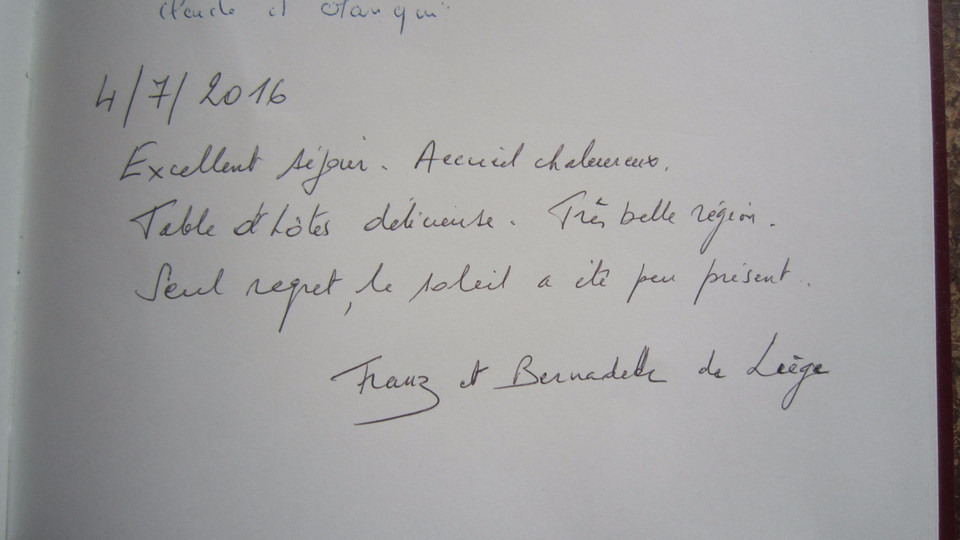 4/7/2016
Excellent séjour. Accueil chaleureux.
Table d'hôtes délicieuse. Très belle région.
Seul regret, le soleil a été peu présent..
Franz et Bernadette de Liège